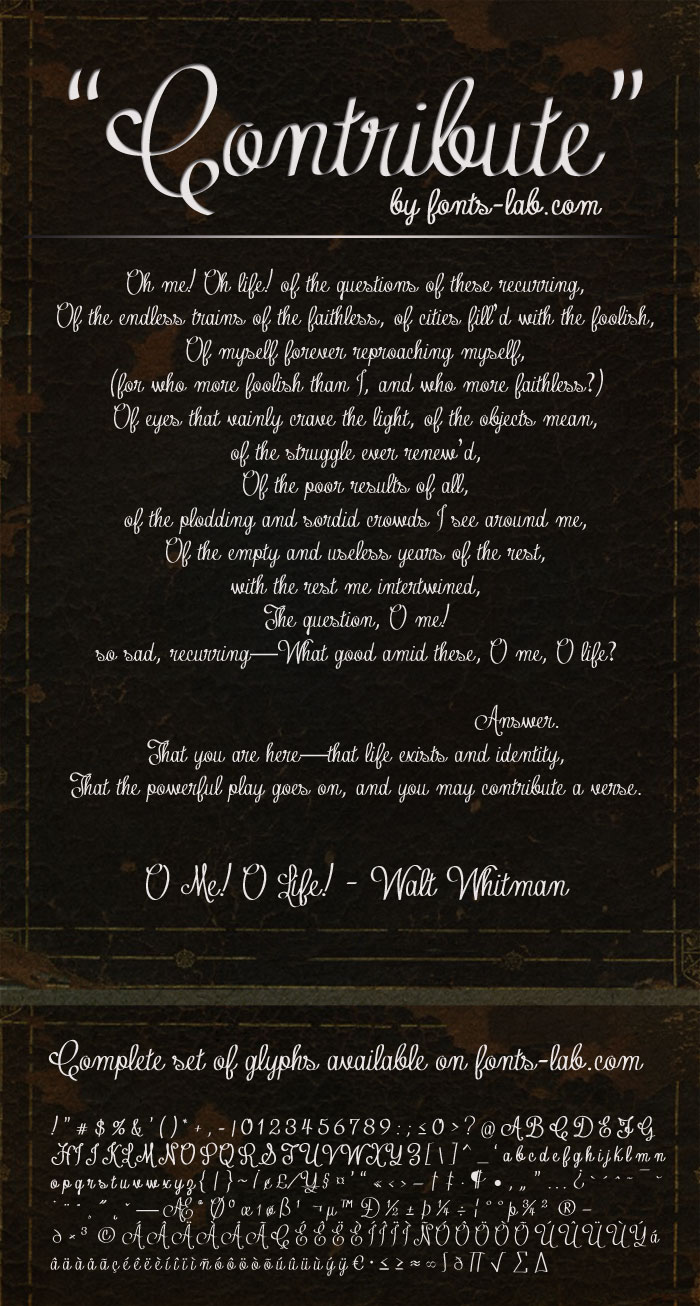 “Contribute”
by fonts-lab.com
Oh me! Oh life! of the questions of these recurring,
Of the endless trains of the faithless, of cities fill’d with the foolish,
Of myself forever reproaching myself,
(for who more foolish than I, and who more faithless?)
Of eyes that vainly crave the light, of the objects mean,
of the struggle ever renew’d,
Of the poor results of all,
of the plodding and sordid crowds I see around me,
Of the empty and useless years of the rest,
with the rest me intertwined,
The question, O me!
so sad, recurring—What good amid these, O me, O life?
Answer.
That you are here—that life exists and identity,
That the powerful play goes on, and you may contribute a verse.
O Me! O Life! - Walt Whitman
Complete set of glyphs available on fonts-lab.com
! " # $ % & ' ( ) * + , - | 0 1 2 3 4 5 6 7 8 9 : ; ≤ 0 > ? @ A B C D E F G
H I J K L M N O P Q R S T U V W X Y Z [ \ ] ^ _ ‘ a b c d e f g h i j k l m n
o p q r s t u v w x y z { | } ~
— Æ ª Ø º æ ı ø ß ¹ ¬ µ ™ Ð ½ ± þ ¼ ÷ ¦ ° ¾ ² ® –
ä ã à â å ç é ê ë è í î ï ì ñ ó ô ö ò õ ú û ü ù ý ÿ € · ≤ ≥ ≈ ∞ ∫ ∂ ∏ √ ∑ ∆